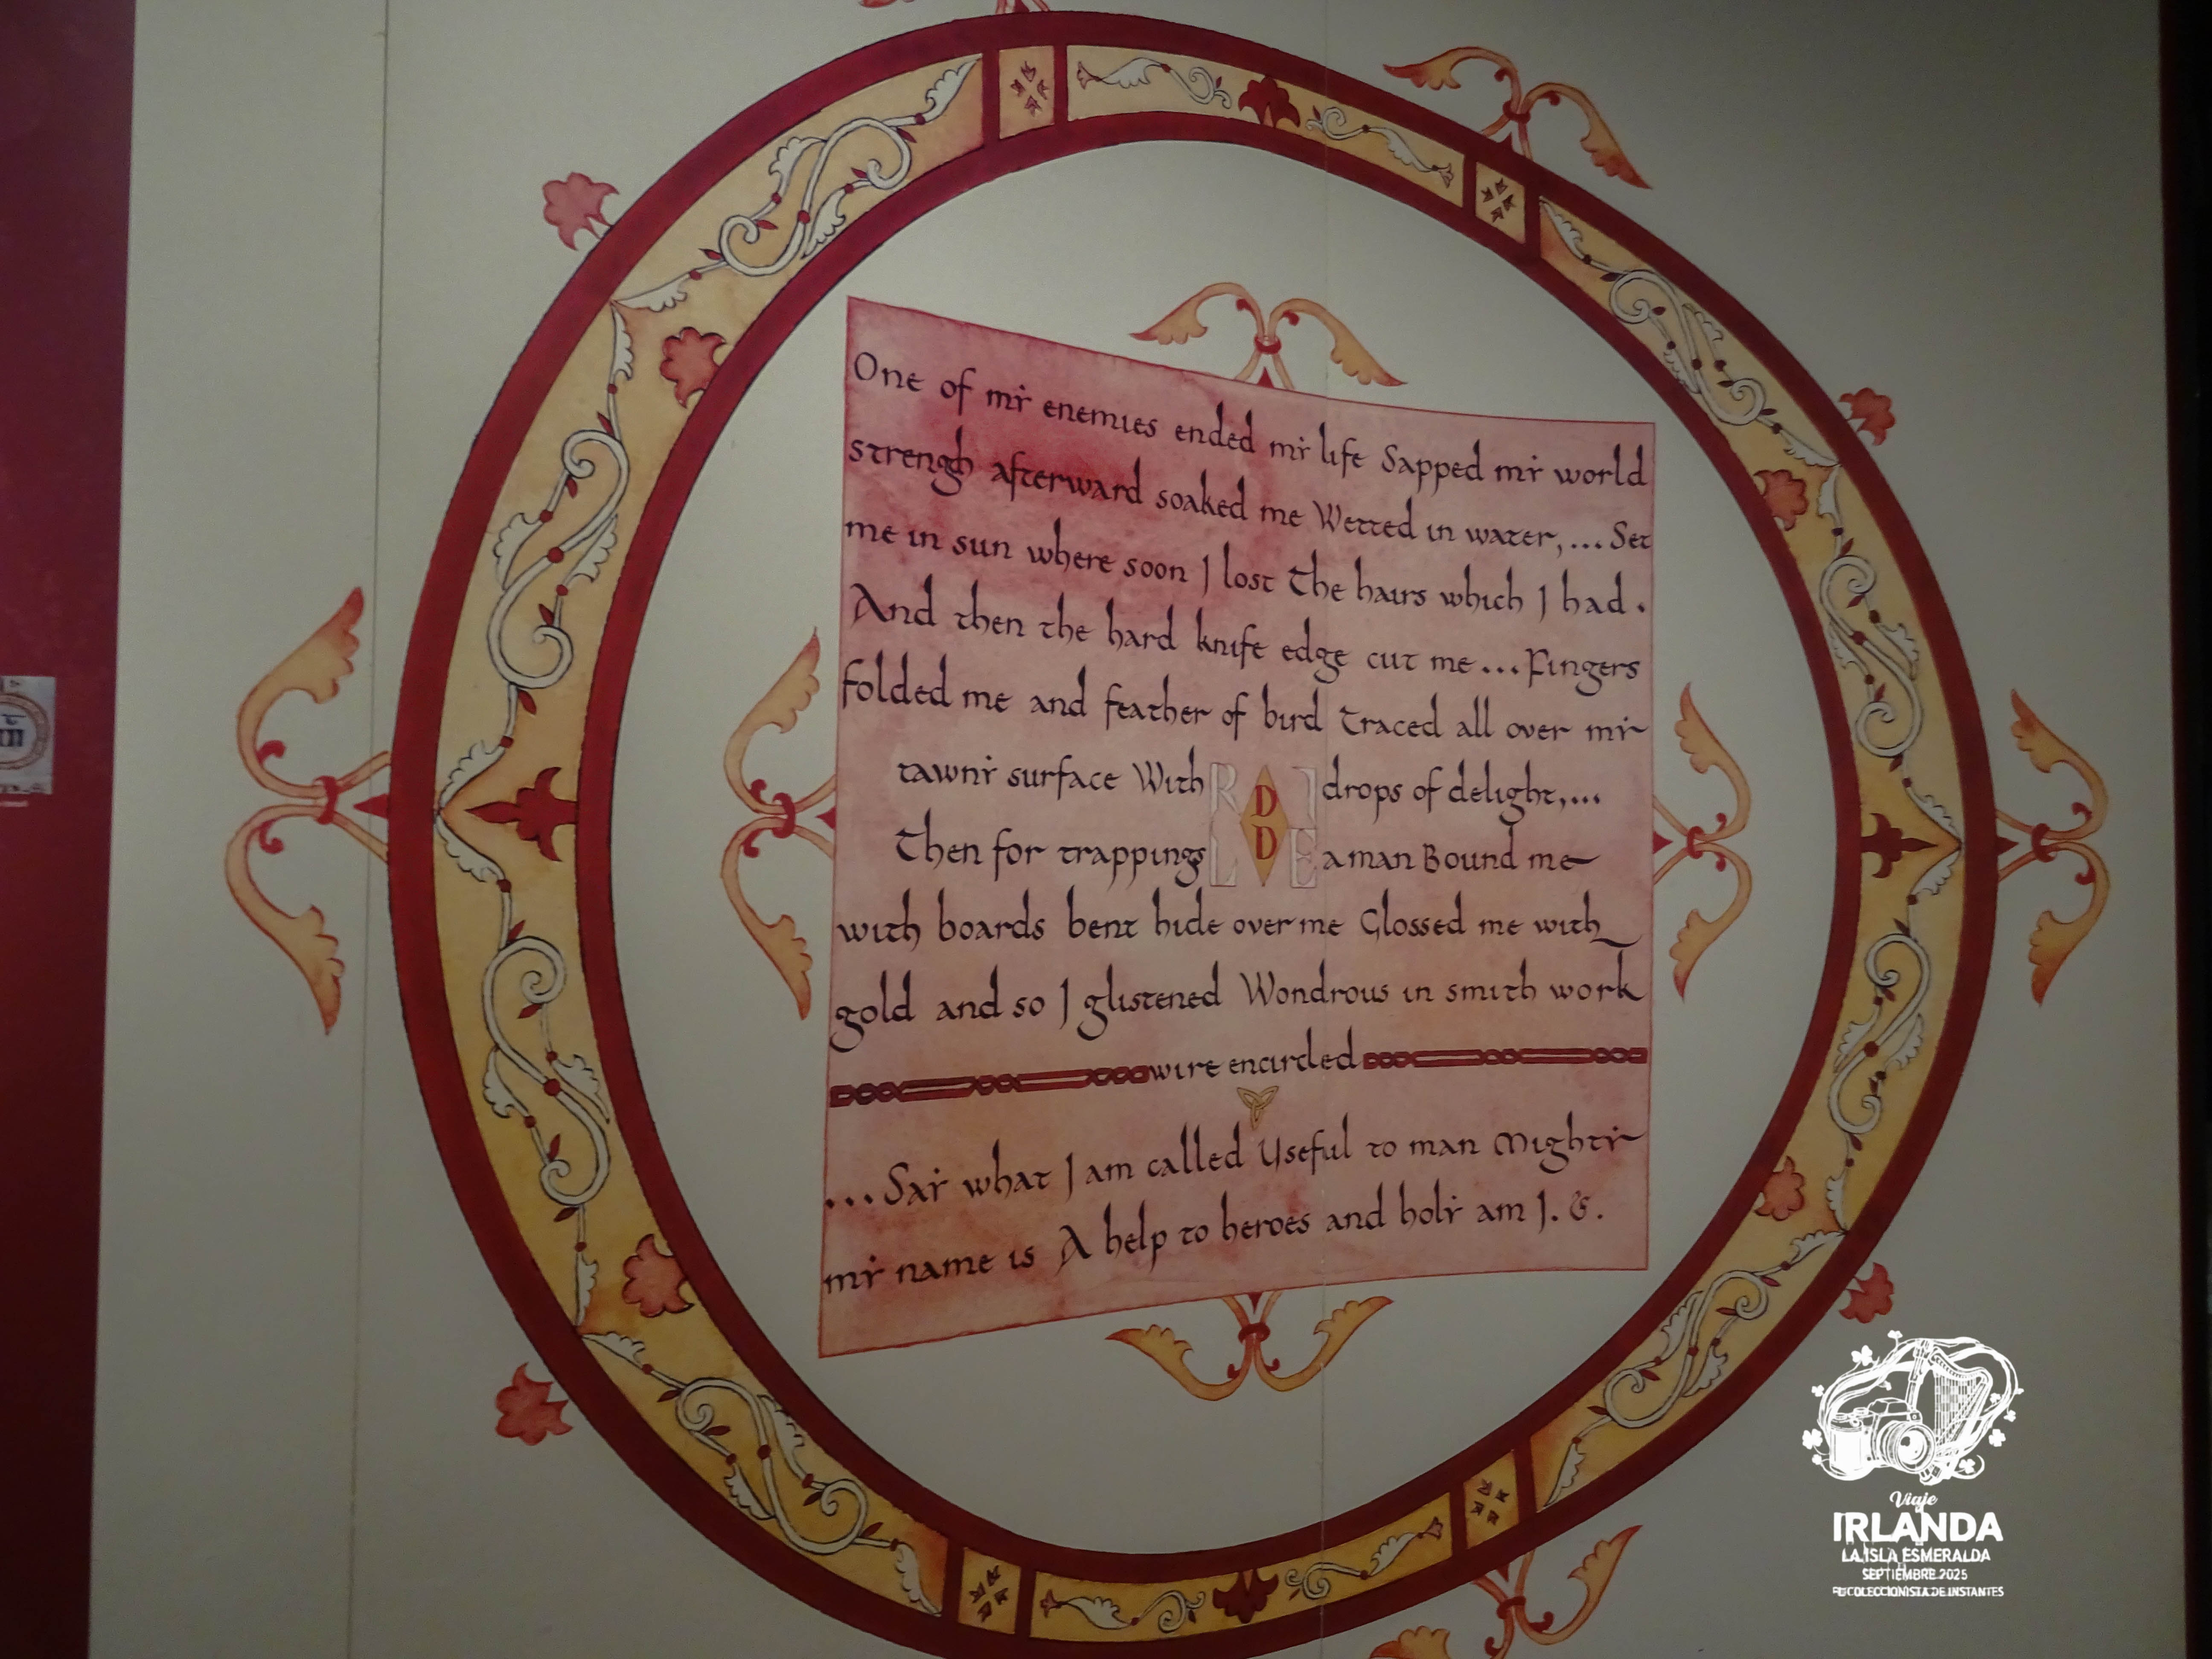 One of my enemies ended my life Sapped my world
strengh afterward soaked me Wetted in water,... Set
me in sun where soon I lost the hairs which I had.
And then the hard knife edge cut me... Fingers
folded me and feather of bird traced all over my
tawny surface With drops of delight,...
RIDDLE
Then for trappings a man Bound me
with boards bent hide over me Glossed me with
gold and so I glistened Wondrous in smith work
wire encircled
...Say what I am called Useful to man Mighty
my name is A help to heroes and holy am I. &.
Viaje
IRLANDA
LA ISLA ESMERALDA
SEPTIEMBRE 2025
COLECCIONISTA DE INSTANTES